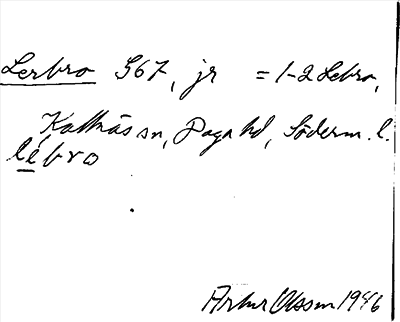 Lerbro 567, jr = 1-2 Lebro,
Kattnäs sn, Daga hd, Söderm. l.
lébro
Artur Olsson 1946